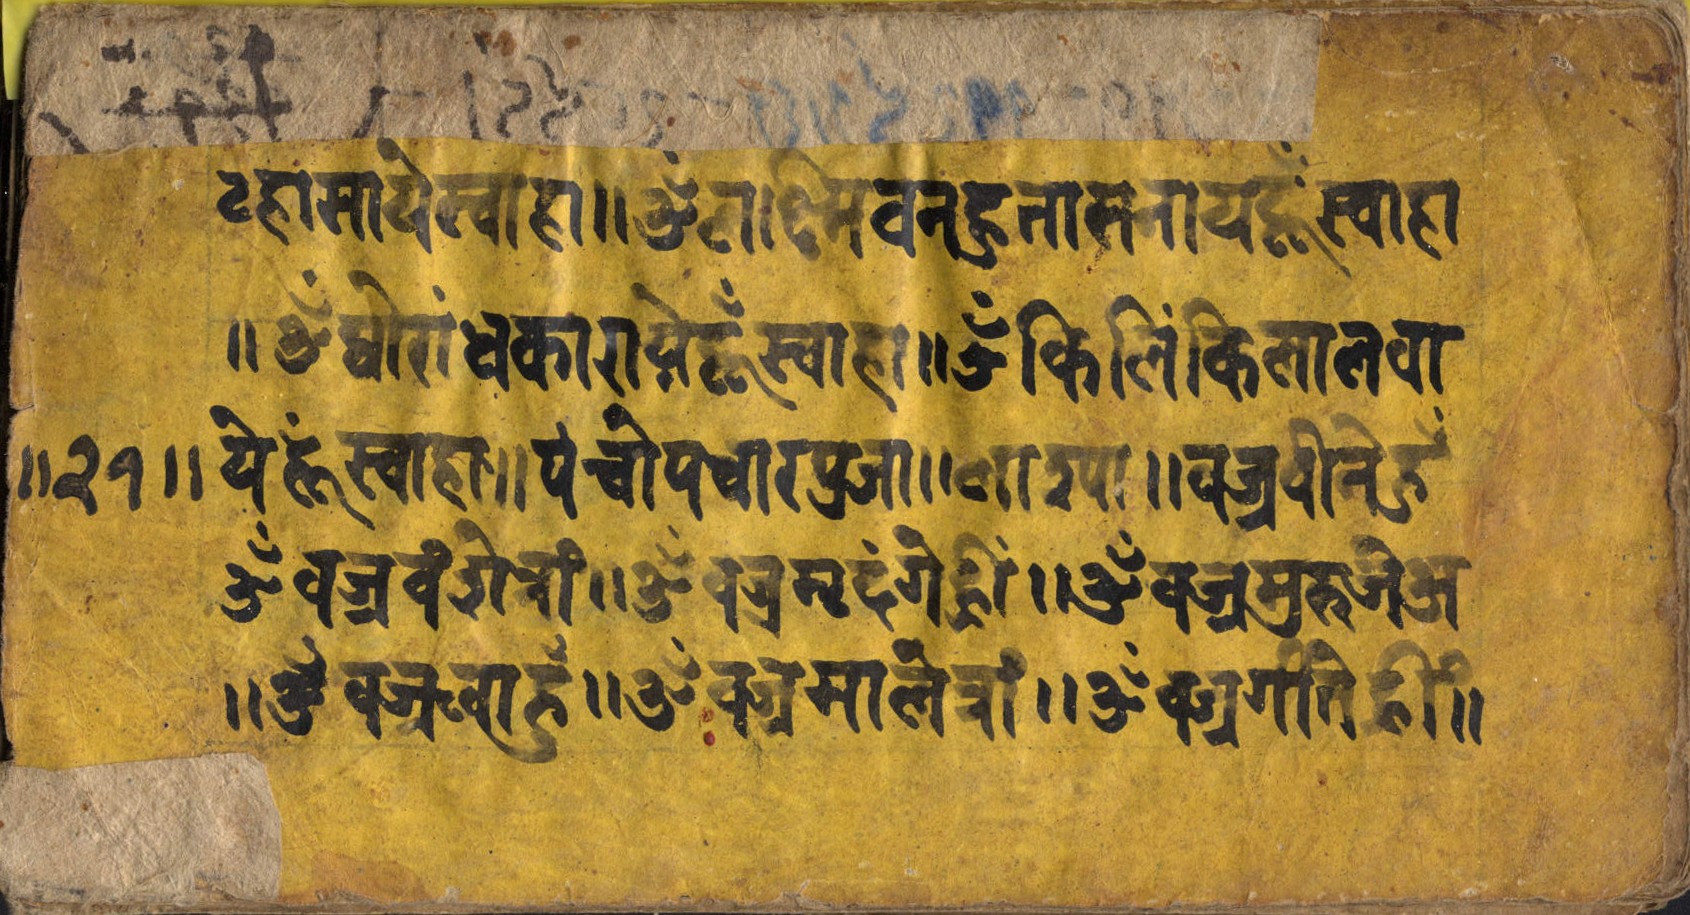 टहासाये स्वाहा॥ ॐ वन्हुत्तासनाय हूँ स्वाहा
॥ ॐ घोरांधकाराये हूँ स्वाहा॥ ॐ किलिंकिलालवा
॥२१॥ ये हूँ स्वाहा॥ पंचोपचारपुजा॥ ॥ वज्रवीने हूँ
ॐ वज्रवंशे त्रां॥ ॐ वज्रमृदंगे ह्रीं॥ ॐ वज्रमुरुजे अ
॥ ॐ वज्र हूँ॥ ॐ वज्रमाले त्रां॥ ॐ वज्रगीते ह्रीं॥